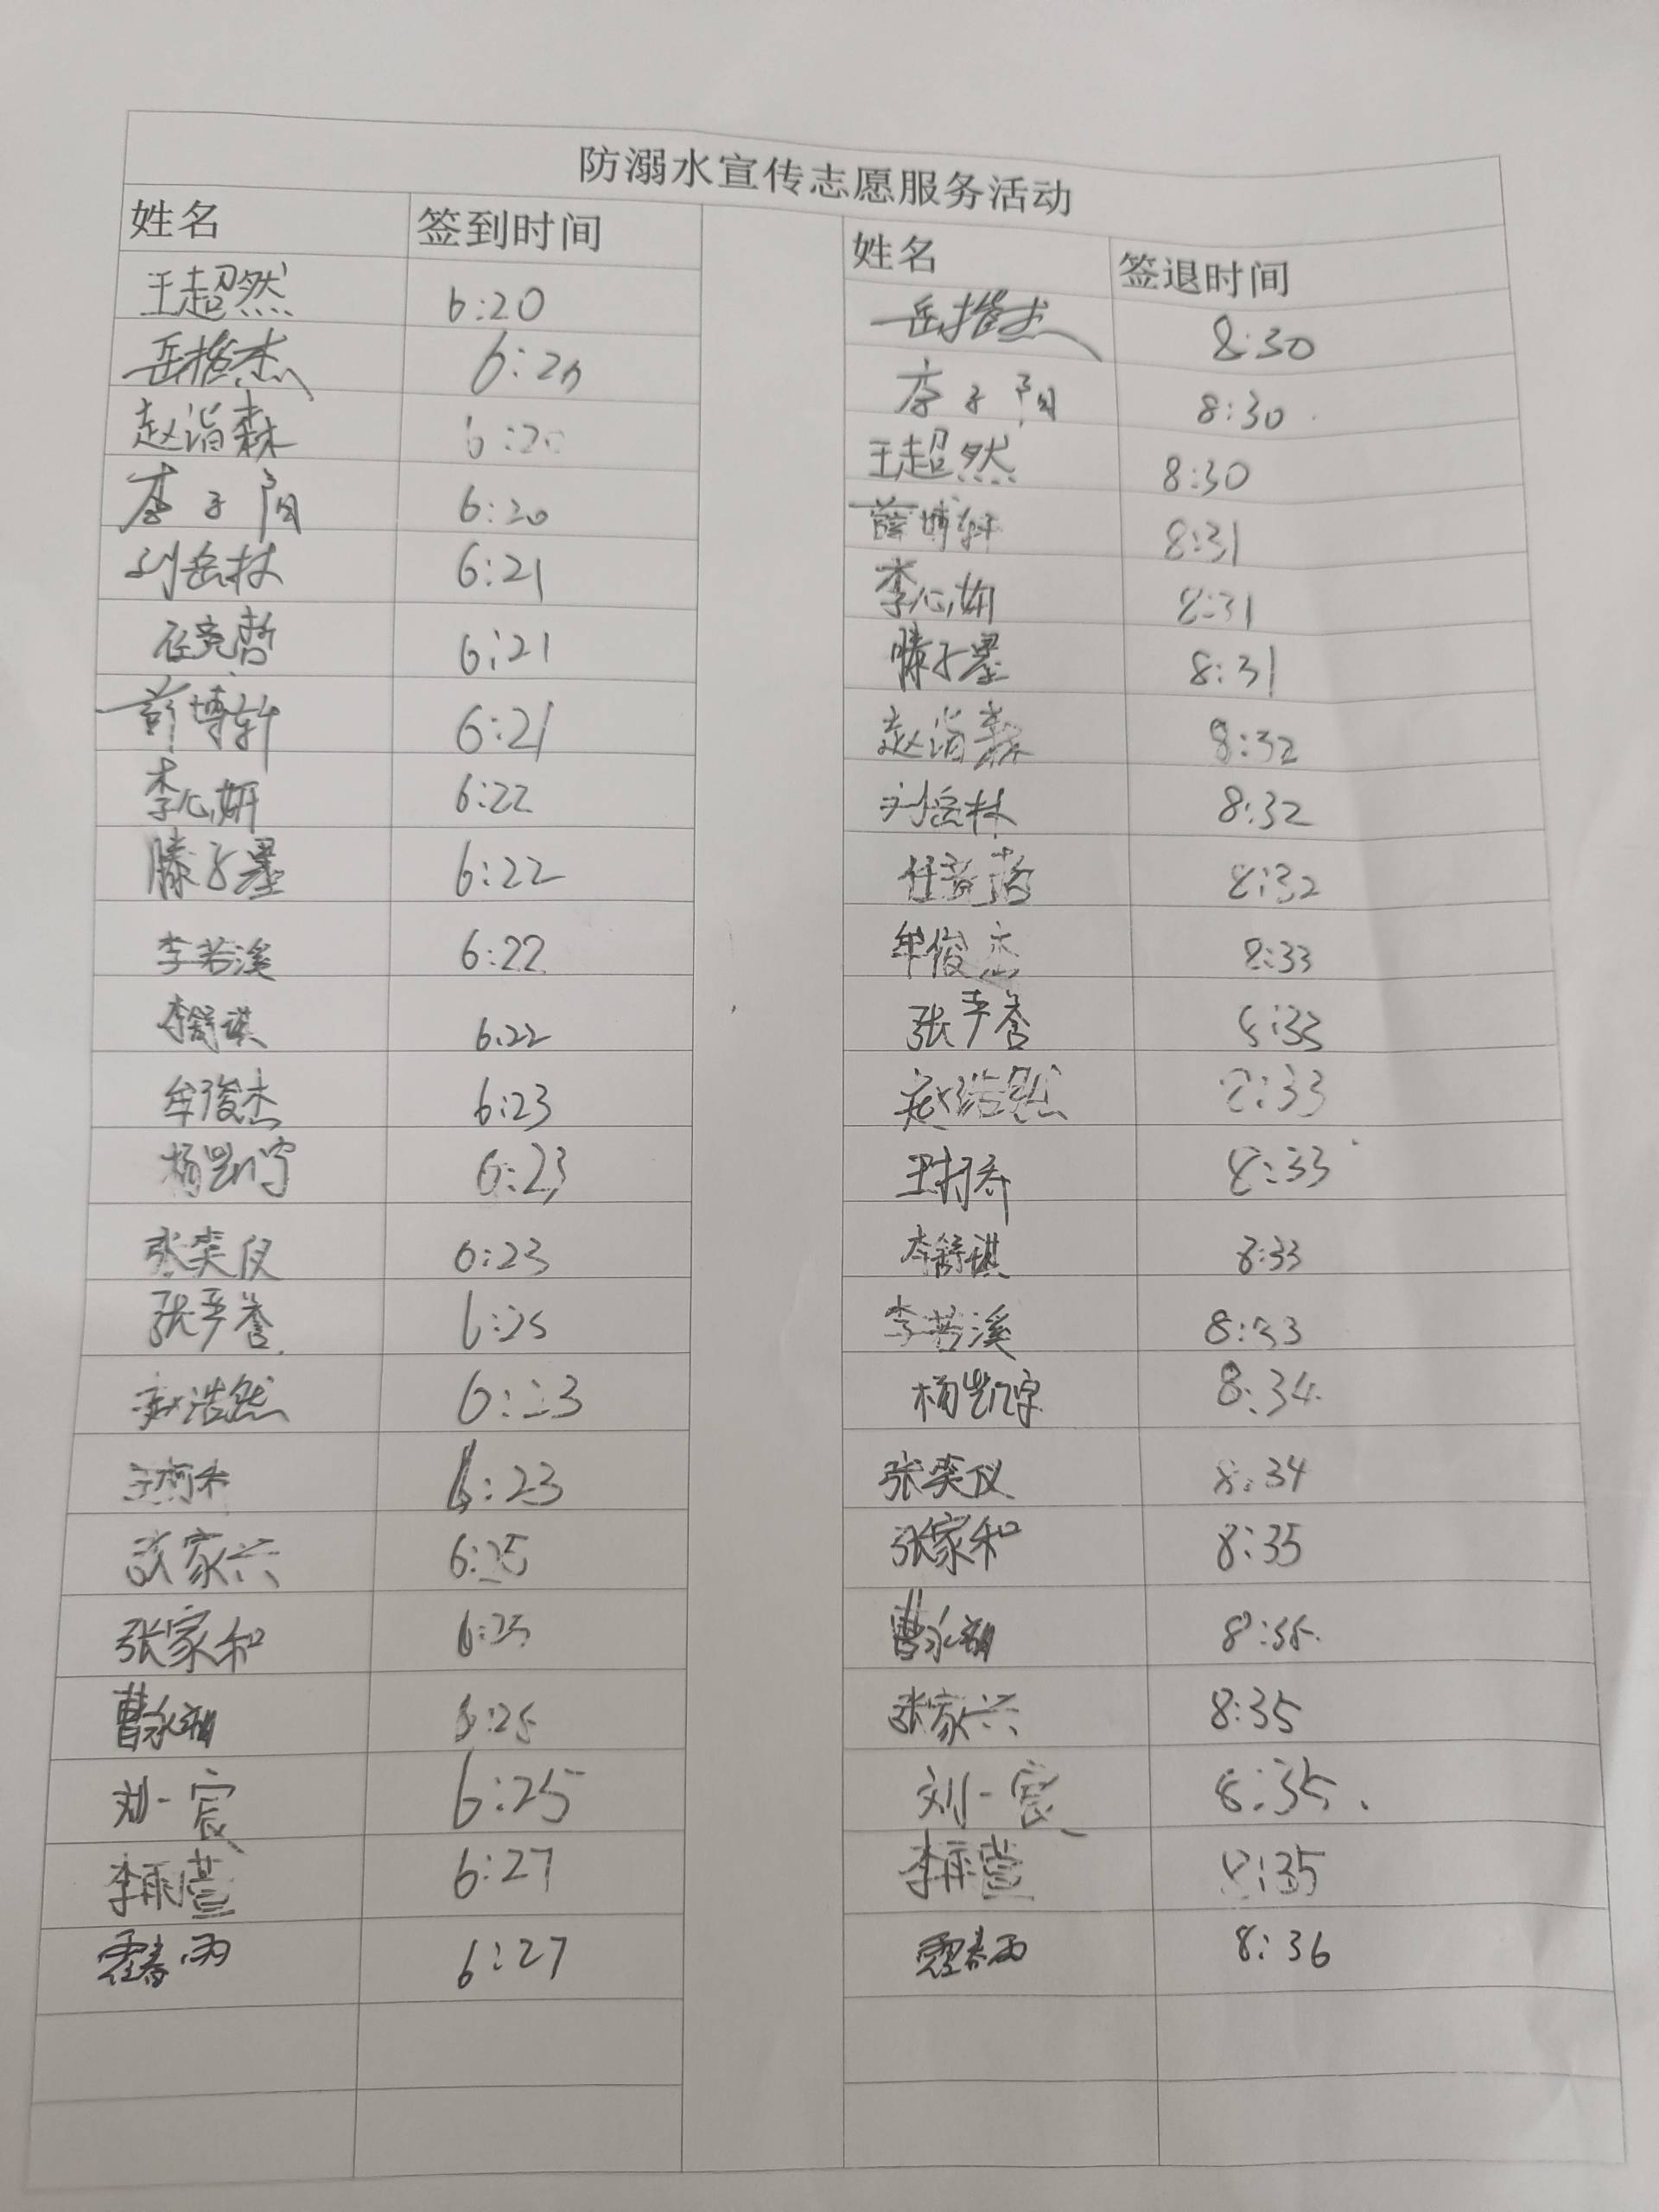 防溺水宣传志愿服务活动
姓名 签到时间 姓名 签退时间
王超然 6:20 8:30
6:20 李子阳 8:30
赵洺森 6:20 王超然 8:30
李子阳 6:20 薛博轩 8:31
刘岳林 6:21 李心妍 8:31
任竞哲 6:21 滕子墨 8:31
薛博轩 6:21 赵洺森 8:32
李心妍 6:22 刘岳林 8:32
滕子墨 6:22 8:32
李若溪 6:22 牟俊杰 8:33
李舒祺 6:22 8:33
牟俊杰 6:23 赵浩然 8:33
杨凯宁 6:23 8:33
张奕仪 6:23 李舒祺 8:33
6:23 李若溪 8:33
赵浩然 6:23 杨凯宁 8:34
6:23 张奕仪 8:34
张家六 6:25 张家和 8:35
张家和 6:25 8:35
6:25 张家六 8:35
刘一宸 6:25 刘一宸 8:35
李雨萱 6:27 李雨萱 8:35
6:27 8:36